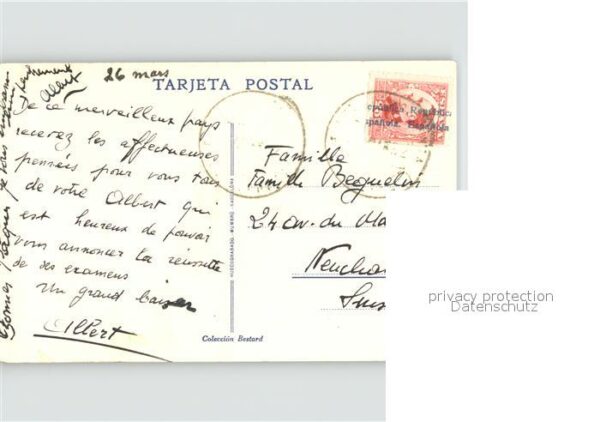 26 mars
TARJETA POSTAL
De ce merveilleux pays
recevez les affectueuses
pensées pour vous tous
de votre Albert qui
est heureux de pouvoir
vous annoncer la réussite
de ses examens
Un grand baiser
Albert
Albert
República Repúblic
española. Española
Famille
Famille Beguelin
24 av. du Ma
Neucha
Suis
HUECOGRABADO, MUMBRÚ, BARCELONA
Colección Bestard
privacy protection
Datenschutz